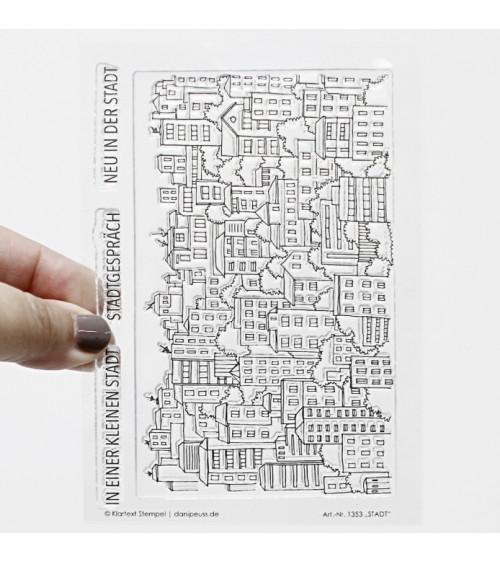 NEU IN DER STADT
STADTGESPRÄCH
IN EINER KLEINEN STADT
© Klartext Stempel | danipeuss.de
Art.-Nr. 1353 „STADT“